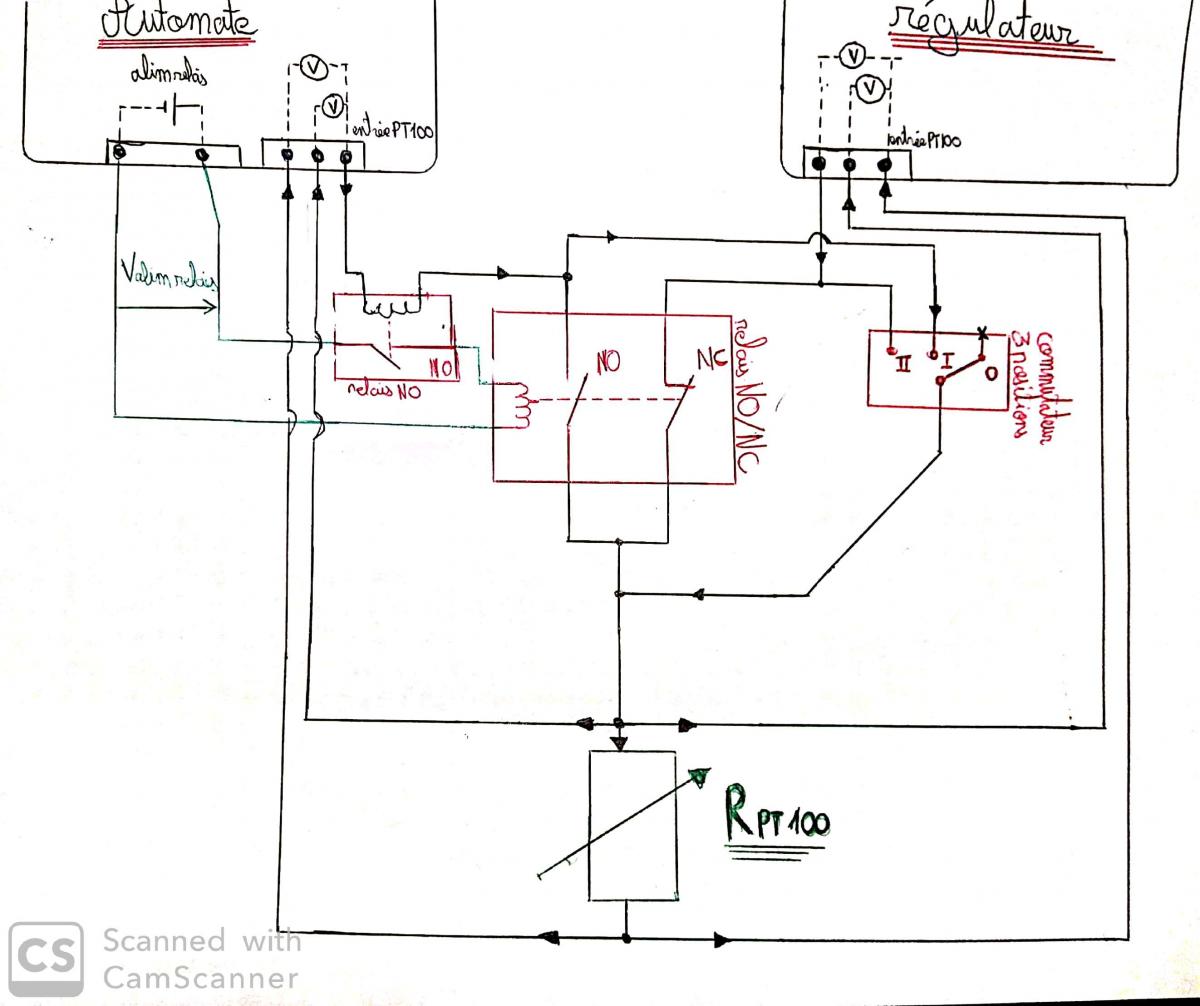 Automate
régulateur
alim relais
V
V
entrée PT100
V
V
entrée PT100
Valim relais
NO
relais NO
NO
NC
relais NO/NC
II
I
O
commutateur
3 positions
RPT100
CS
Scanned with
CamScanner